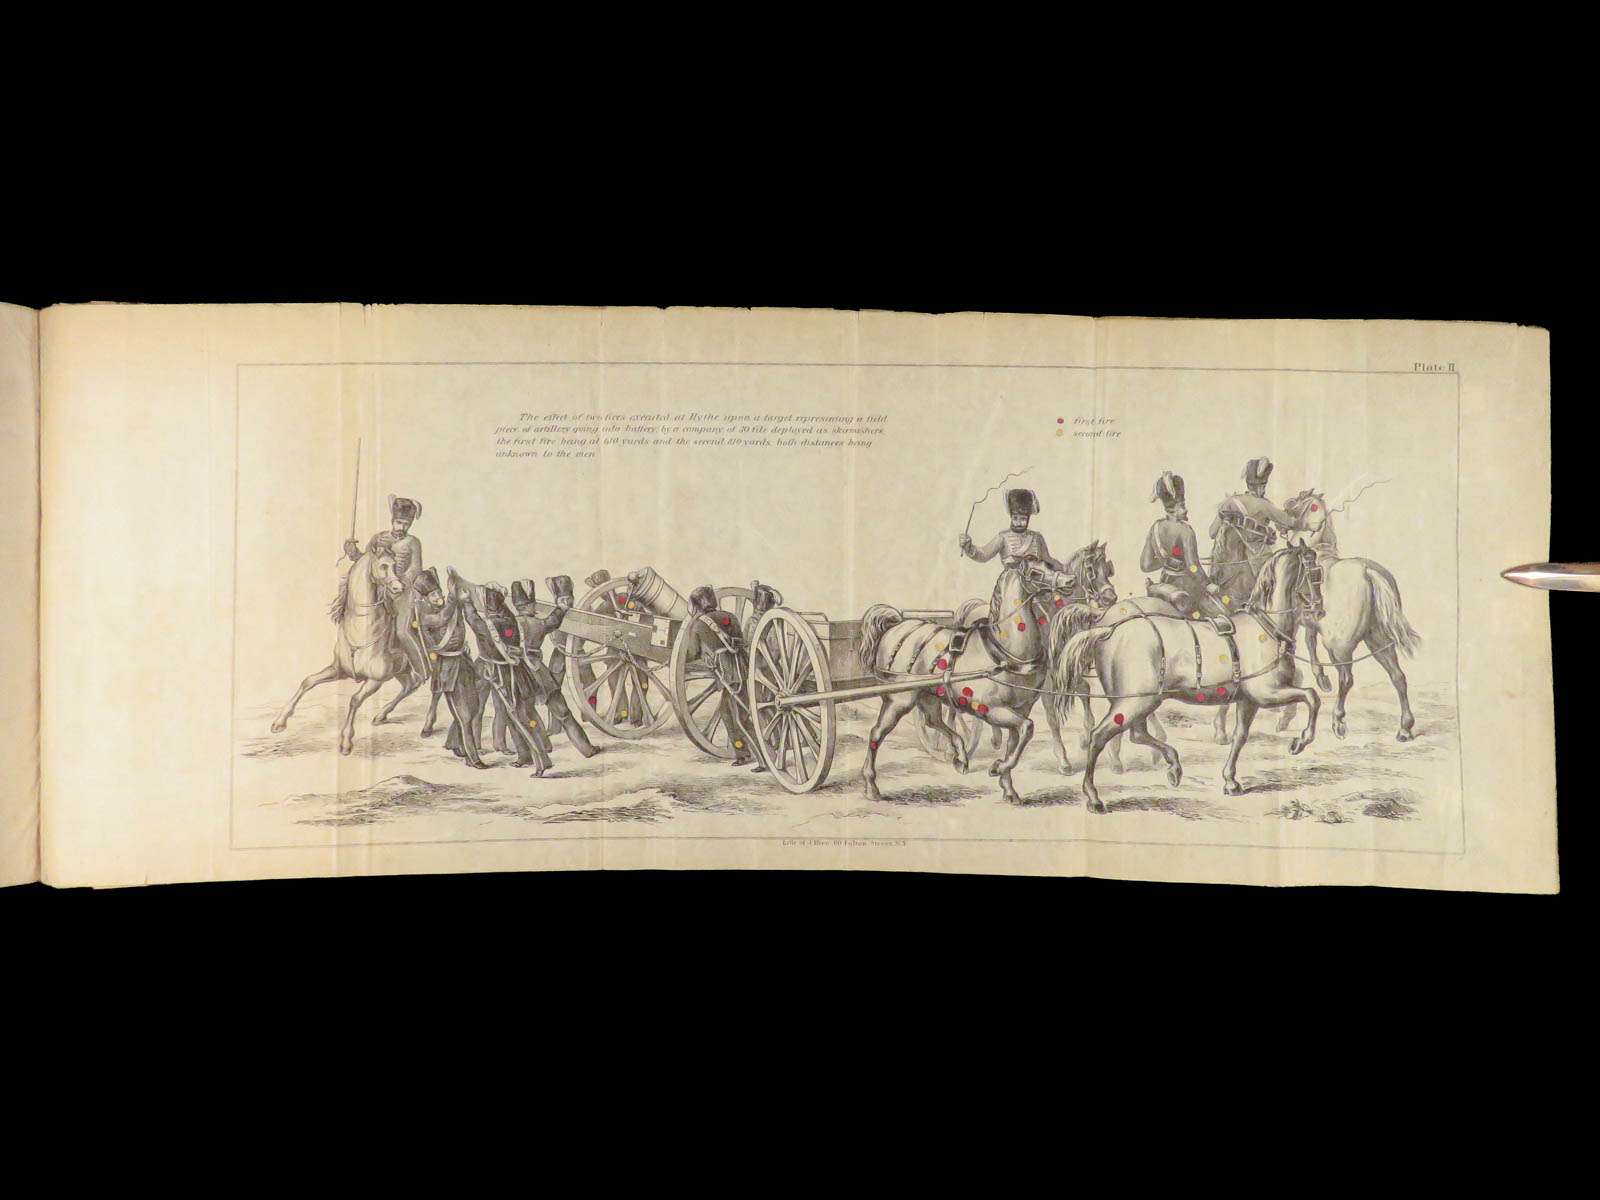 Plate II
The effect of two fires executed at Hythe upon a target representing a field
piece of artillery going into battery, by a company of 30 file deployed as skirmishers,
the first fire being at 610 yards and the second 810 yards, both distances being
unknown to the men
first fire
second fire
Lith of J. Bien, 60 Fulton Street, N.Y.